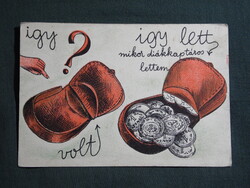 így
?
volt
így lett
mikor diákkaptáros
lettem